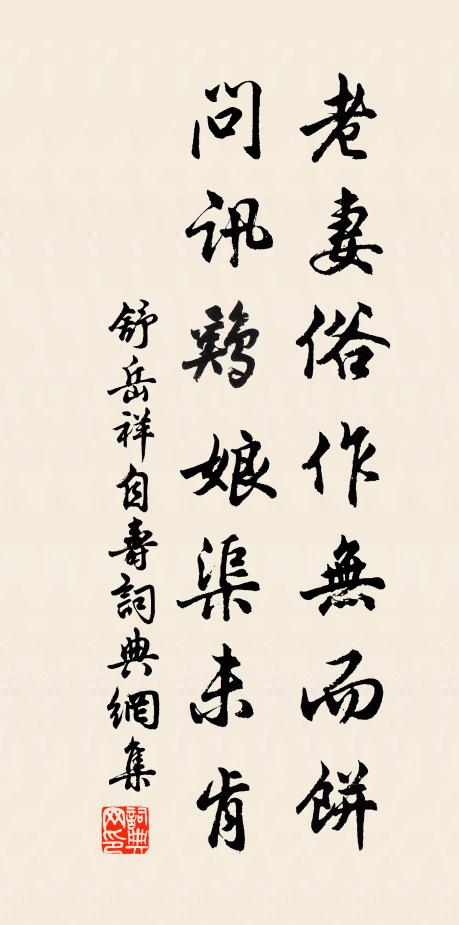 老妻俗作無而餅
問訊鷄娘渠未肯
舒岳祥自壽詞典網集
詞典
网印